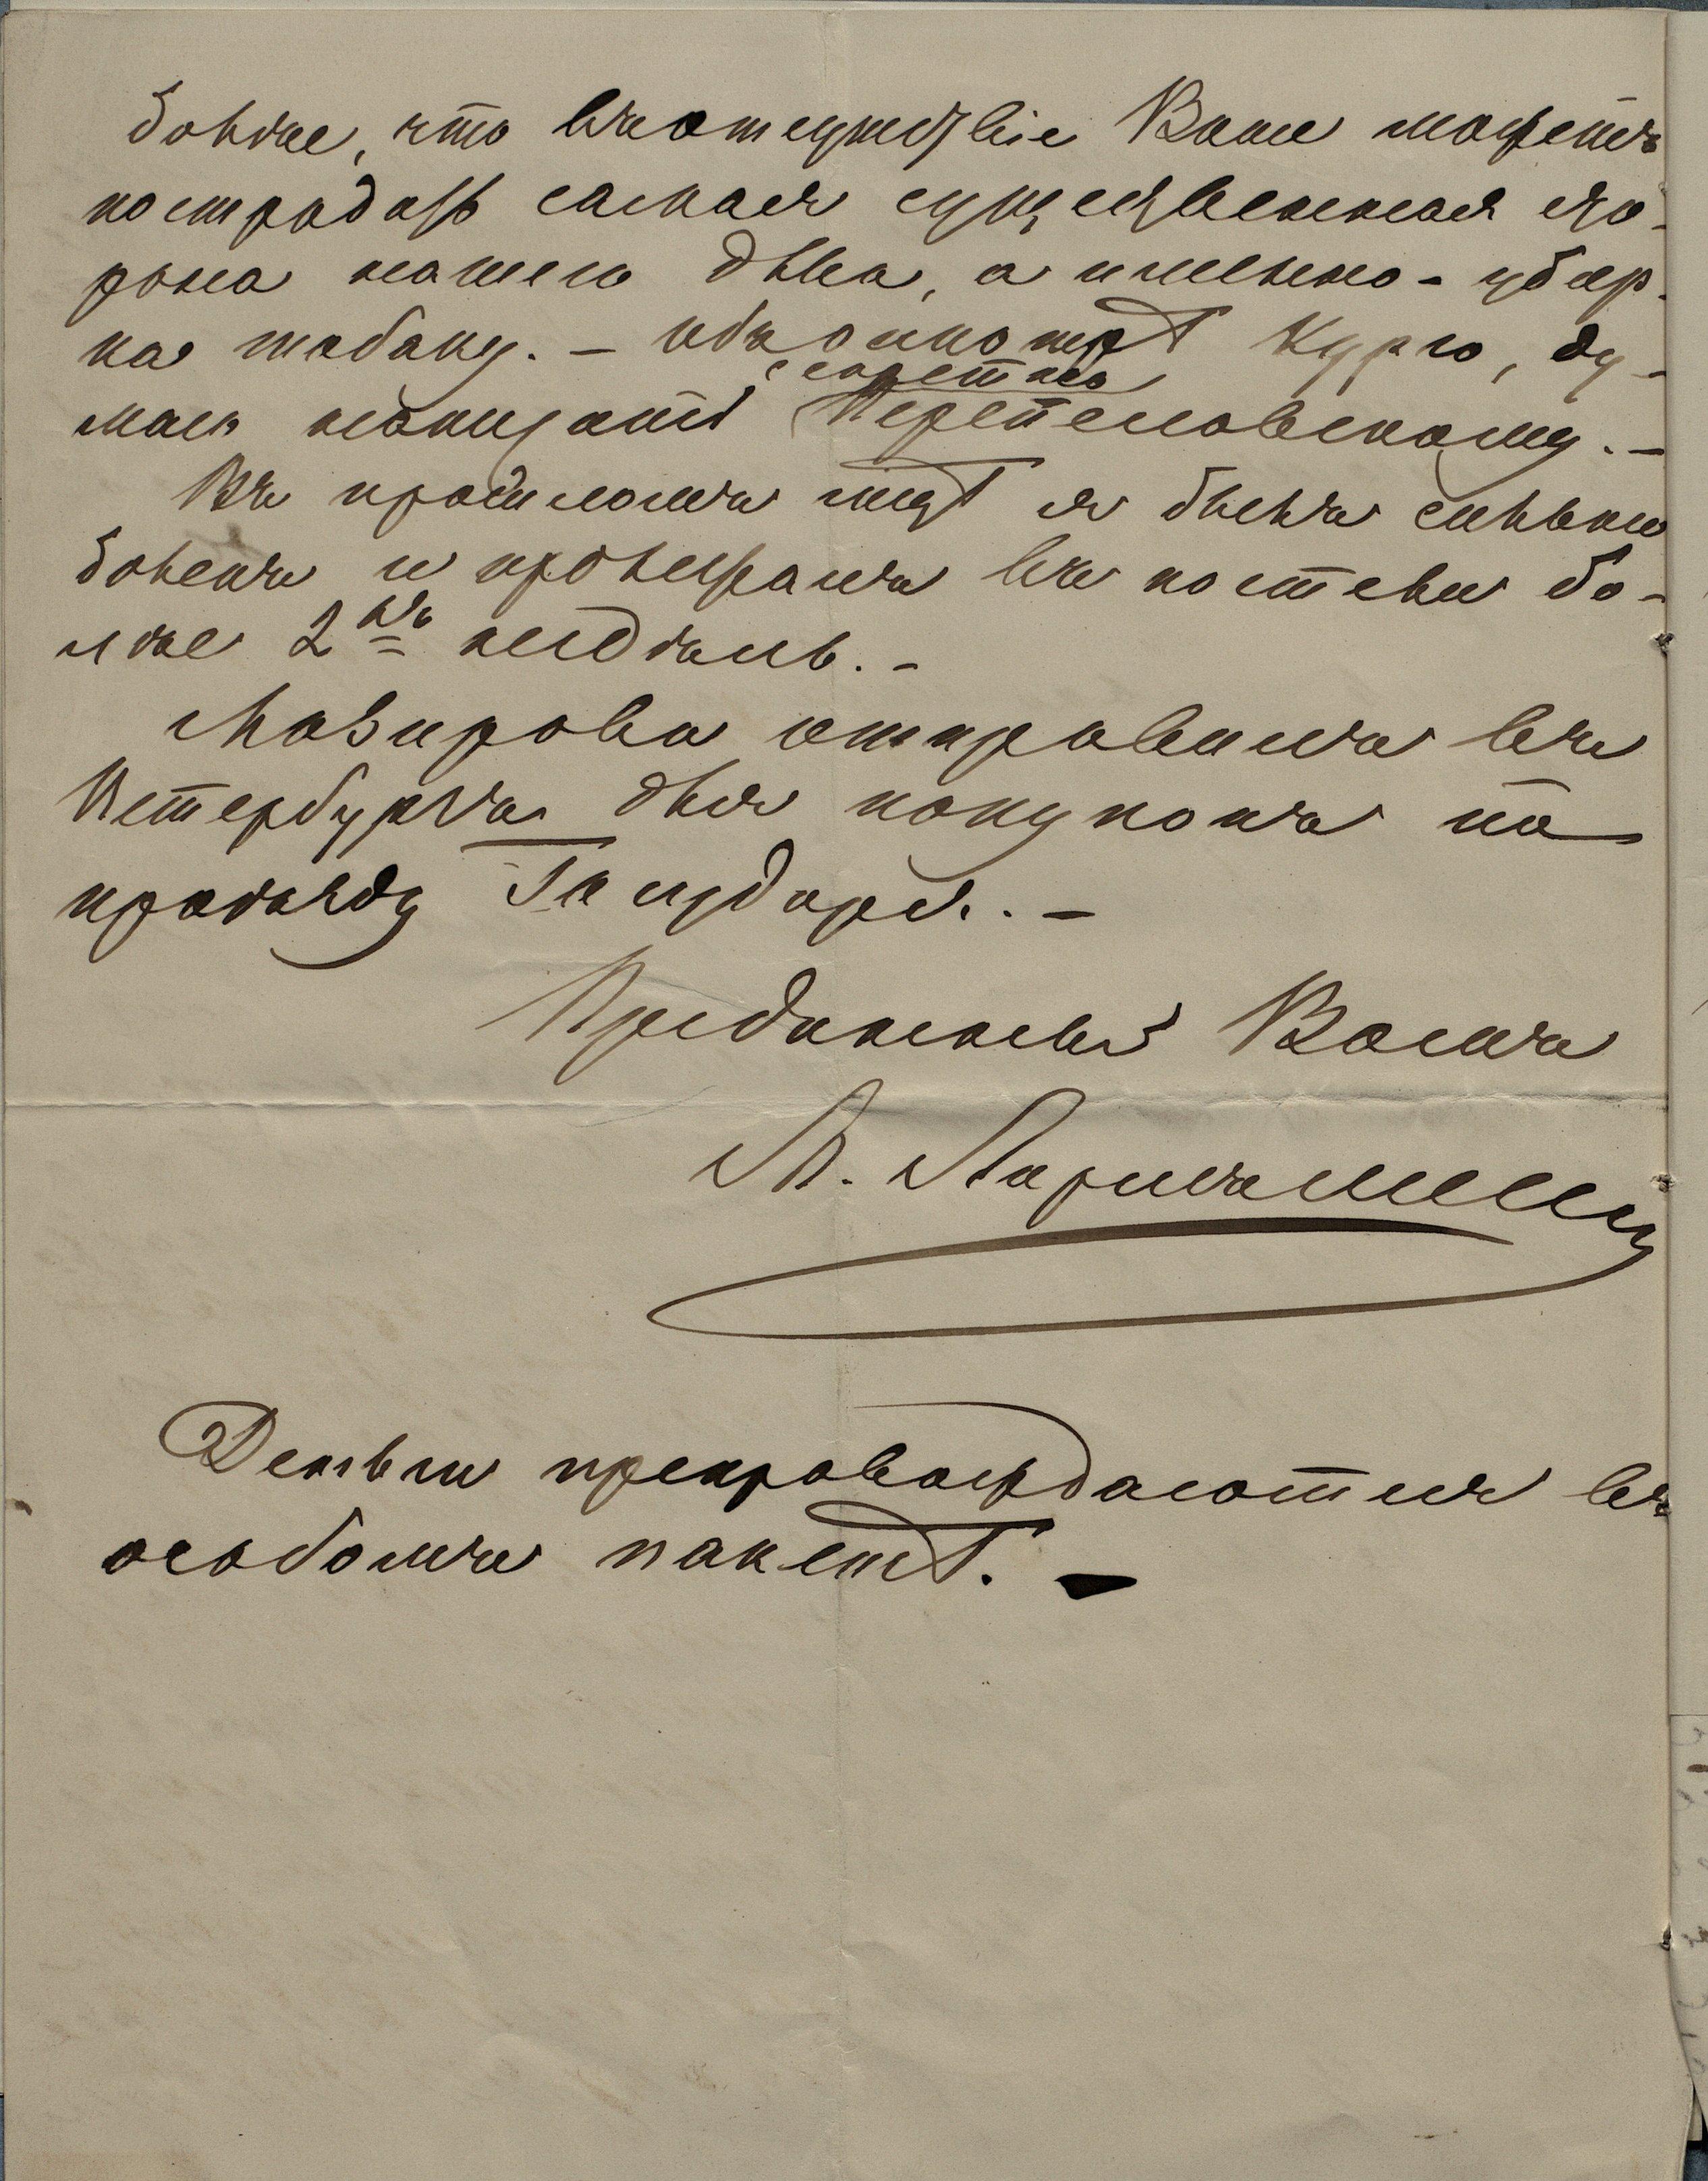 болѣе, что въ отсутствіе Ваше можетъ
пострадать самая существенная сто-
рона нашего дѣла, а именно - убор-
ка табаку. - Объ окномѣ Курго, ду-
секретно
маю написать Перепеловскому. -
Въ прошломъ мѣс. я былъ сильно
боленъ и пролежалъ въ постели бо-
лѣе 2хъ недѣль. -
Мазирова отправилъ въ
Петербургъ для покупокъ по
проѣзду Государя. -
Преданный Вамъ
Деньги препровождаются въ
особомъ пакетѣ. -